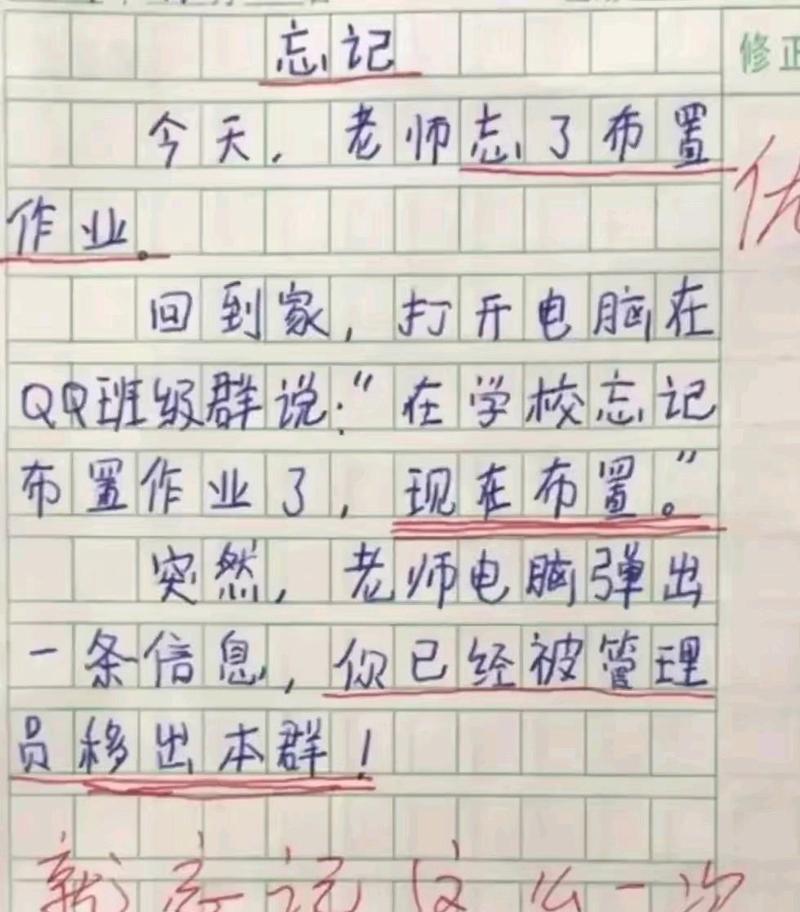 忘记
修正
今天，老师忘了布置
优
作业。
回到家，打开电脑在
QQ班级群说：“在学校忘记
布置作业了，现在布置。”
突然，老师电脑弹出
一条信息，你已经被管理
员移出本群！
就忘记这么一次